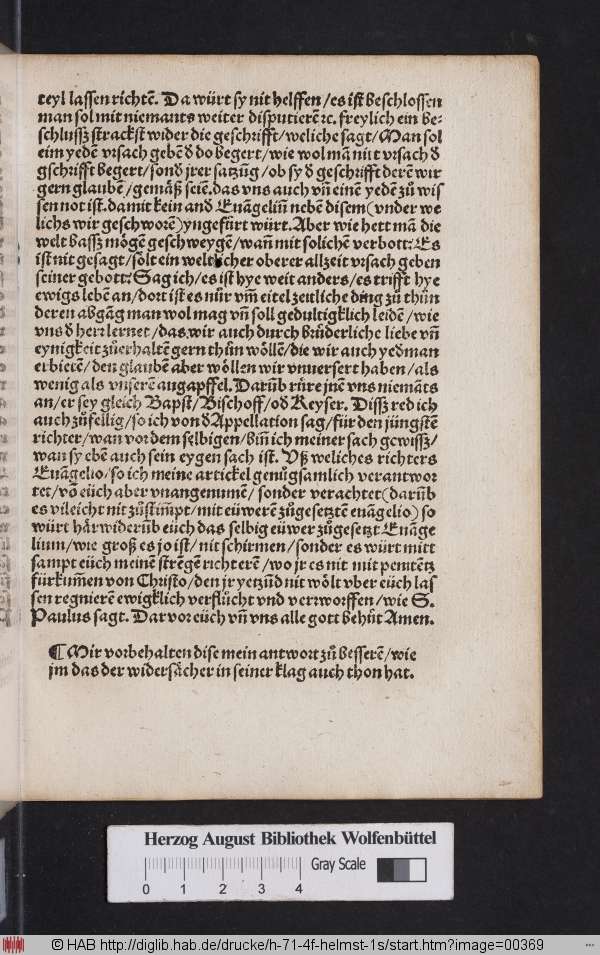 teyl lassen richtē. Da würt sy nit helffen/es ist beschlossen
man sol mit niemants weiter disputierē ꝛc. freylich ein be-
schlussz strackst wider die geschrifft/weliche sagt/Man sol
eim yedē vrsach gebē ď do begert/wie wol mā nit vrsach ď
gschrifft begert/sonď jrer satzūg/ob sy ď geschrifft derē wir
gern glaubē/gemäß seiē.das vns auch vn̄ einē yedē zů wis
sen not ist.damit kein anď Euāgeliū nebē disem(vnder we
lichs wir geschworē)yngefürt würt.Aber wie hett mā die
welt bassz mögē geschweygē/wan̄ mit solichē verbott: Es
ist nit gesagt/solt ein weltlicher oberer allzeit vrsach geben
seiner gebott: Sag ich/es ist hye weit anders/es trifft hye
ewigs lebē an/dort ist es nůr vm̄ eitel zeitliche ding zů thůn
deren abgāg man wol mag vn̄ soll gedultigklich leidē/wie
vns ď herr lernet/das wir auch durch brůderliche liebe vn̄
eynigkeit zůerhaltē gern thůn wöllē/die wir auch yeďman
erbietē/den glaubē aber wöllen wir vnuersert haben/als
wenig als vnserē augapffel.Darūb růre jnē vns niemāts
an/er sey gleich Bapst/Bischoff/oď Keyser. Dissz red ich
auch zůfellig/so ich von ď Appellation sag/für den jüngstē
richter/wan vor dem selbigen/bin̄ ich meiner sach gewissz/
wan sy ebē auch sein eygen sach ist. Vß weliches richters
Euāgelio/so ich meine artickel genůgsamlich verantwor
tet/vō eüch aber vnangenumē/ sonder verachtet(darūb
es vileicht nit zůstimpt/mit eüwerē zůgesetztē euāgelio) so
würt härwiderūb eüch das selbig eüwer zůgesetzt Euāge
lium/wie groß es jo ist/nit schirmen/sonder es würt mitt
sampt eüch meinē strēgē richterē/wo jr es nit mit penitētz
fürkum̄en von Christo/den jr yetzūd nit wölt vber eüch las
sen regnierē ewigklich verflůcht vnd verworffen/wie S.
Paulus sagt. Dar vor eüch vn̄ vns alle gott behůt Amen.
¶ Mir vorbehalten dise mein antwort zů besserē/wie
jm das der widersächer in seiner klag auch thon hat.
Herzog August Bibliothek Wolfenbüttel
Gray Scale
0 1 2 3 4
© HAB http://diglib.hab.de/drucke/h-71-4f-helmst-1s/start.htm?image=00369